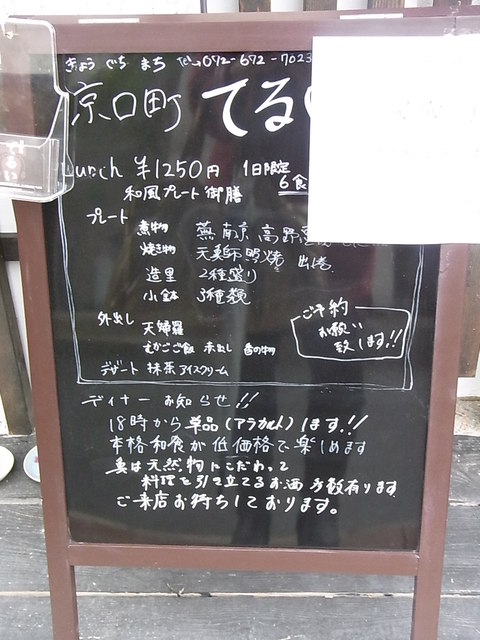 きょうぐちまち ℡→072-672-7023
京口町 てる
Lunch ¥1250円 1日限定
6食
和風プレート御膳
プレート
煮物 蕪 南京 高野
焼き物 照焼 出巻
造里 2種盛り
小鉢 3種類
外出し
天婦羅
むかごご飯 赤出し 香の物
デザート 抹茶アイスクリーム
ご予約
お願い
致します!!
ディナーお知らせ!!
18時から単品(アラカルト)します!!
本格和食が低価格で楽しめます
魚は天然物にこだわって
料理を引き立てるお酒多数有ります
ご来店お待ちしております。